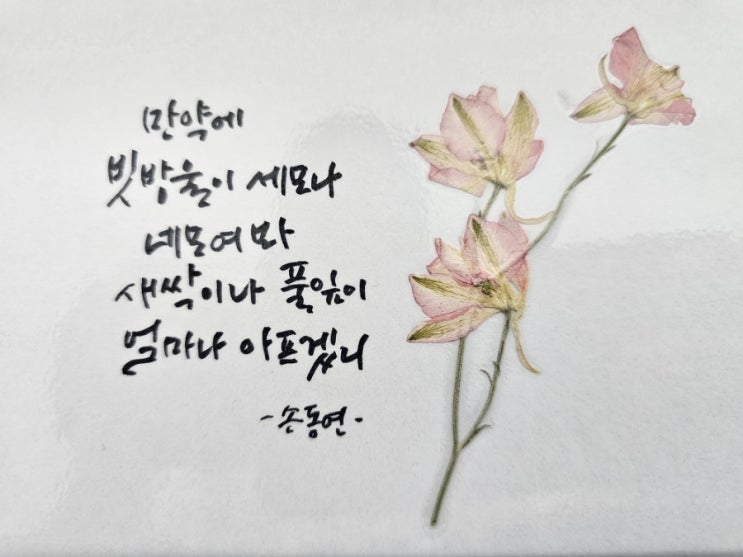 만약에
빗방울이 세모나
네모여 봐
새싹이나 풀잎이
얼마나 아프겠니
-손동연-